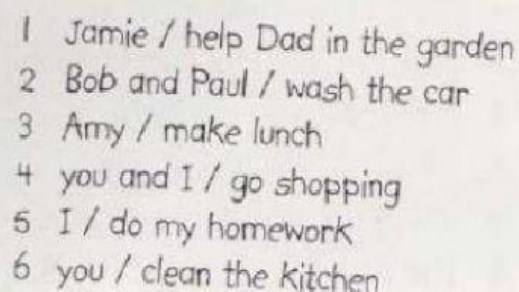 1 Jamie / help Dad in the garden
2 Bob and Paul / wash the car
3 Amy / make lunch
4 you and I / go shopping
5 I / do my homework
6 you / clean the kitchen